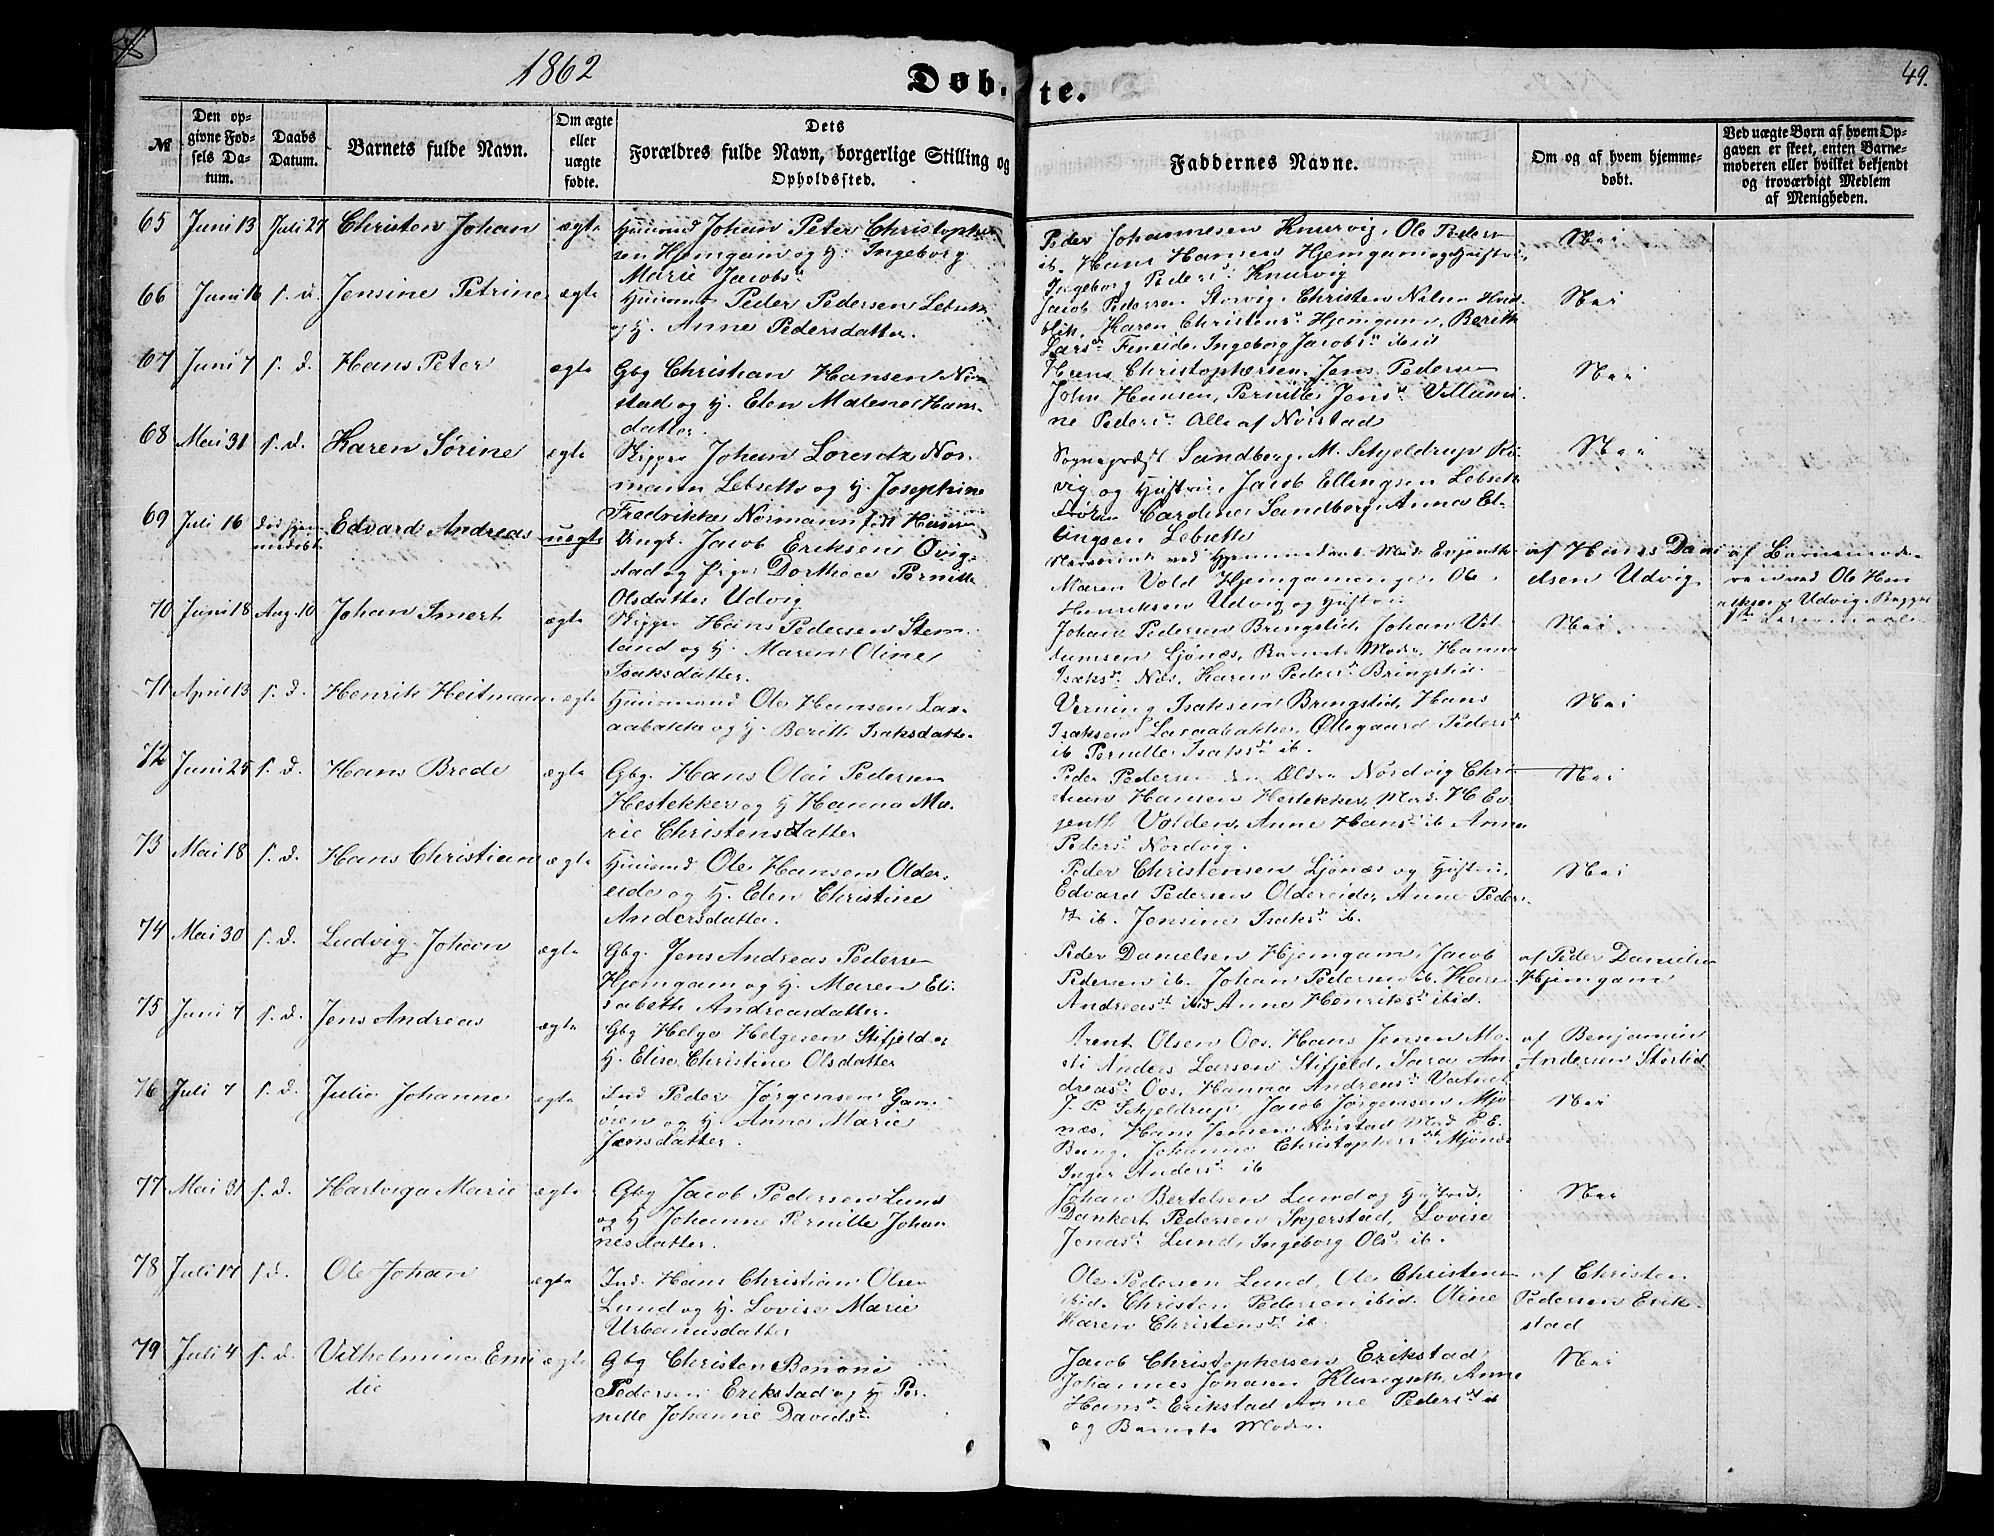 1862
Døbte.
49.
№
Den opgivne Fødsels Datum.
Daabs Datum.
Barnets fulde Navn.
Om ægte eller uægte fødte.
Dets Forældres fulde Navn, borgerlige Stilling og Opholdssted.
Faddernes Navne.
Om og af hvem hjemmedøbt.
Ved uægte Børn af hvem Opgaven er skeet, enten Barnemoderen eller hvilket bekjendt og troværdigt Medlem af Menigheden.
65 Juni 13 Juli 27 Christen Johan ægte Huusmd Johan Peter Christopher
sen Hjemgam og H. Ingeborg
Marie Jacobsd
Peder Johannesen Knurvig, Ole Peders
ib. Hans Hansen Hjemgam og Hustru,
Ingeborg Pedersd Knurvig
Nei
66 Juni 16 s. d. Jensine Petrine ægte Huusmd Peder Pedersen Lebsett
og H. Anne Pedersdatter.
Jacob Pedersen Storvig, Christen Nilsen Hvid
blik, Karen Christensd Hjemgam, Berith
Larsd Fineide, Ingeborg Jacobsd ibid
Nei
67 Juni 7 s. d. Hans Peter ægte Gbg Christian Hansen Nør
stad og H. Elen Malene Hans
datter.
Christophersen, Jens Pedersen
John Hansen, Pernille Jensd Villumi
ne Pedersd Alle af Nørstad
Nei
68 Mai 31 s. d. Karen Sørine ægte Skipper Johan Lorentz Nor
mann Lebsette og H. Josephine
Fredrikke Normann født Hansen
Sognepræst Sandberg, M. Schjeldrup
vig og Hustru, Jacob Ellingsen Lebsett
Frøken Cardine Sandberg, Anna El
lingsen Lebsette
Nei
69 Juli 16 Edvard Andreas uægte Ungk. Jacob Eriksen Qvig
stad og Pige Dorthea Pernille
Olsdatter Udvig
Nærværende ved Hjemmedaab Mad. Enjenth
Maren Vold Hjemgamenger, Ole
Henriksen Udvig og Hustru
af Hans Dani
elsen Udvig
af Barnemode
ren ved Ole Hen
riksen Udvig
70 Juni 18 Aug. 10 Johan Imert ægte Skipper Hans Pedersen Stem
land og H. Maren Oline
Isaksdatter.
Johan Pedersen Bringslid, Johan Vil
lumsen Ljønæs, Barnets Moder, Hanna
Isaksd Nøs, Karen Pedersd Bringslid
Nei
71 April 13 s. d. Henrik Heitmann ægte Huusmand Ole Hansen Lax
aabakke og H. Berith Isaksdatter
Verning Isaksen Bringslid, Hans
Isaksen Laxaabakke, Ollegaard Pedersd
ib Pernille Isaksd ib.
Nei
72 Juni 25 s. d. Hans Brede ægte Gbg. Hans Olai Pedersen
Hestekker og H Hanna Ma
rie Christensdatter
Peder Pedersen den Ældre Nordvig Chri
stian Hansen Hestekker, Mad.
Volden, Anne Hansd ib Anne
Pedersd Nordvig.
Nei
73 Mai 18 s. d. Hans Christian ægte Huusmd Ole Hansen Older
eide og H. Elen Christine
Andersdatter.
Peder Christensen Ljønæs og Hustru,
Edvard Pedersen Oldereide, Anne Peders
dt ib. Jensine Isaksd ib.
Nei
74 Mai 30 s. d. Ludvig Johan ægte Gbg. Jens Andreas Pedersen
Hjemgam og H. Maren Eli
sabeth Andreasdatter.
Peder Danielsen Hjemgam, Jacob
Pedersen ib. Johan Pedersen ib. Karen
Andreasd ibid Anne Henriksd ibid.
af Peder Danielsen
Hjemgam
75 Juni 7 s. d. Jens Andreas ægte Gbg Helge Helgesen Stifjeld og
H. Elise Christine Olsdatter
Arent Olsen Oos, Hans Jensen Mo
sti Anders Larsen Stifjeld, Sara An
dreasd Oos, Hanna Andreasd Vatnet
af Benjamin
Andersen Storlid
76 Juli 7 s. d. Julia Johanne ægte Ind Peder Jørgensen Gam
øien og H. Anna Marie
Jensdatter.
J. P. Schjeldrup, Jacob Jørgensen Mjø
næs, Hans Jensen Nørstad Mad E. E.
Bang, Johanna Christophersdt Mjønæs
Inger Andersd ib
Nei
77 Mai 31 s. d. Hartviga Marie ægte Gbg Jacob Pedersen Lund
og H Johanne Pernille Johan
nesdatter.
Johan Bertelsen Lund og Hustru,
Dankert Pedersen Skjerstad, Lovise
Jonasd Lund, Ingeborg Olsd ib.
Nei
78 Juli 17 s. d. Ole Johan ægte Ind. Hans Christian Olsen
Lund og H. Lovise Marie
Urbanusdatter
Ole Pedersen Lund, Ole Christens
ibid. Christen Pedersen ibid. Oline
Karen Christensd ib.
af Christen
Pedersen Erik
stad
79 Juli 4 s. d. Vilhelmine Emi ægte Gbg Christen Benoni
lie
Pedersen Erikstad og H Per
nille Johanne Davidsd
Jacob Christophersen Erikstad
Johannes Jonasen Klungseth, Anne
Hansd Erikstad Anne Pedersd ib
og Barnets Moder.
Nei